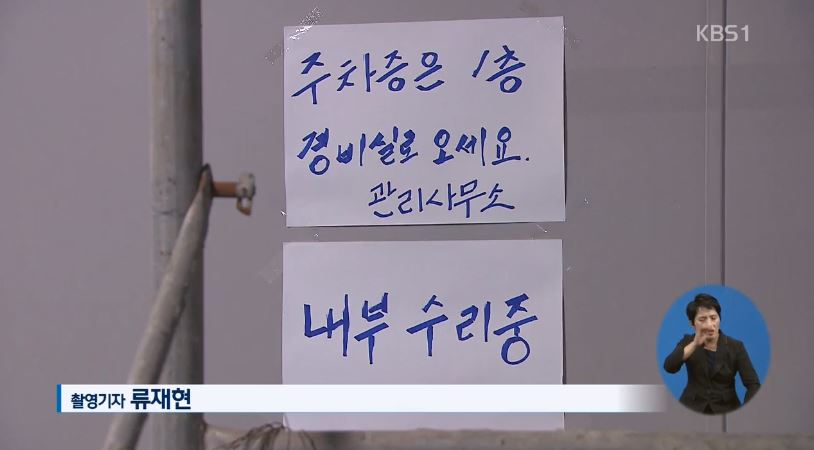 KBS1
주차증은 1층
경비실로 오세요.
관리사무소
내부 수리중
촬영기자 류재현